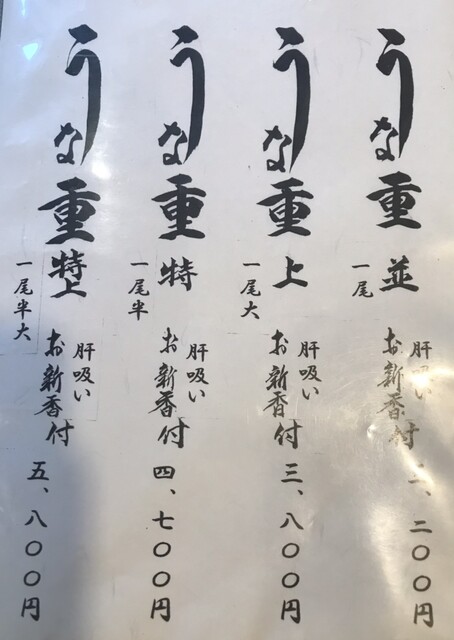 うな重 並
一尾
肝吸い
お新香付
、二〇〇円
うな重 上
一尾大
肝吸い
お新香付
三、八〇〇円
うな重 特
一尾半
肝吸い
お新香付
四、七〇〇円
うな重 特上
一尾半大
肝吸い
お新香付
五、八〇〇円